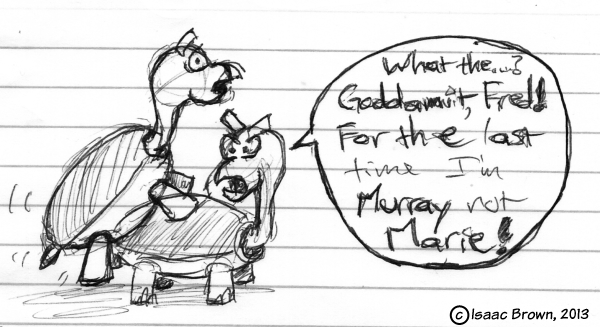 What the...?
Goddammit, Fred!
For the last
time I'm
Murray not
Marie!
© Isaac Brown, 2013